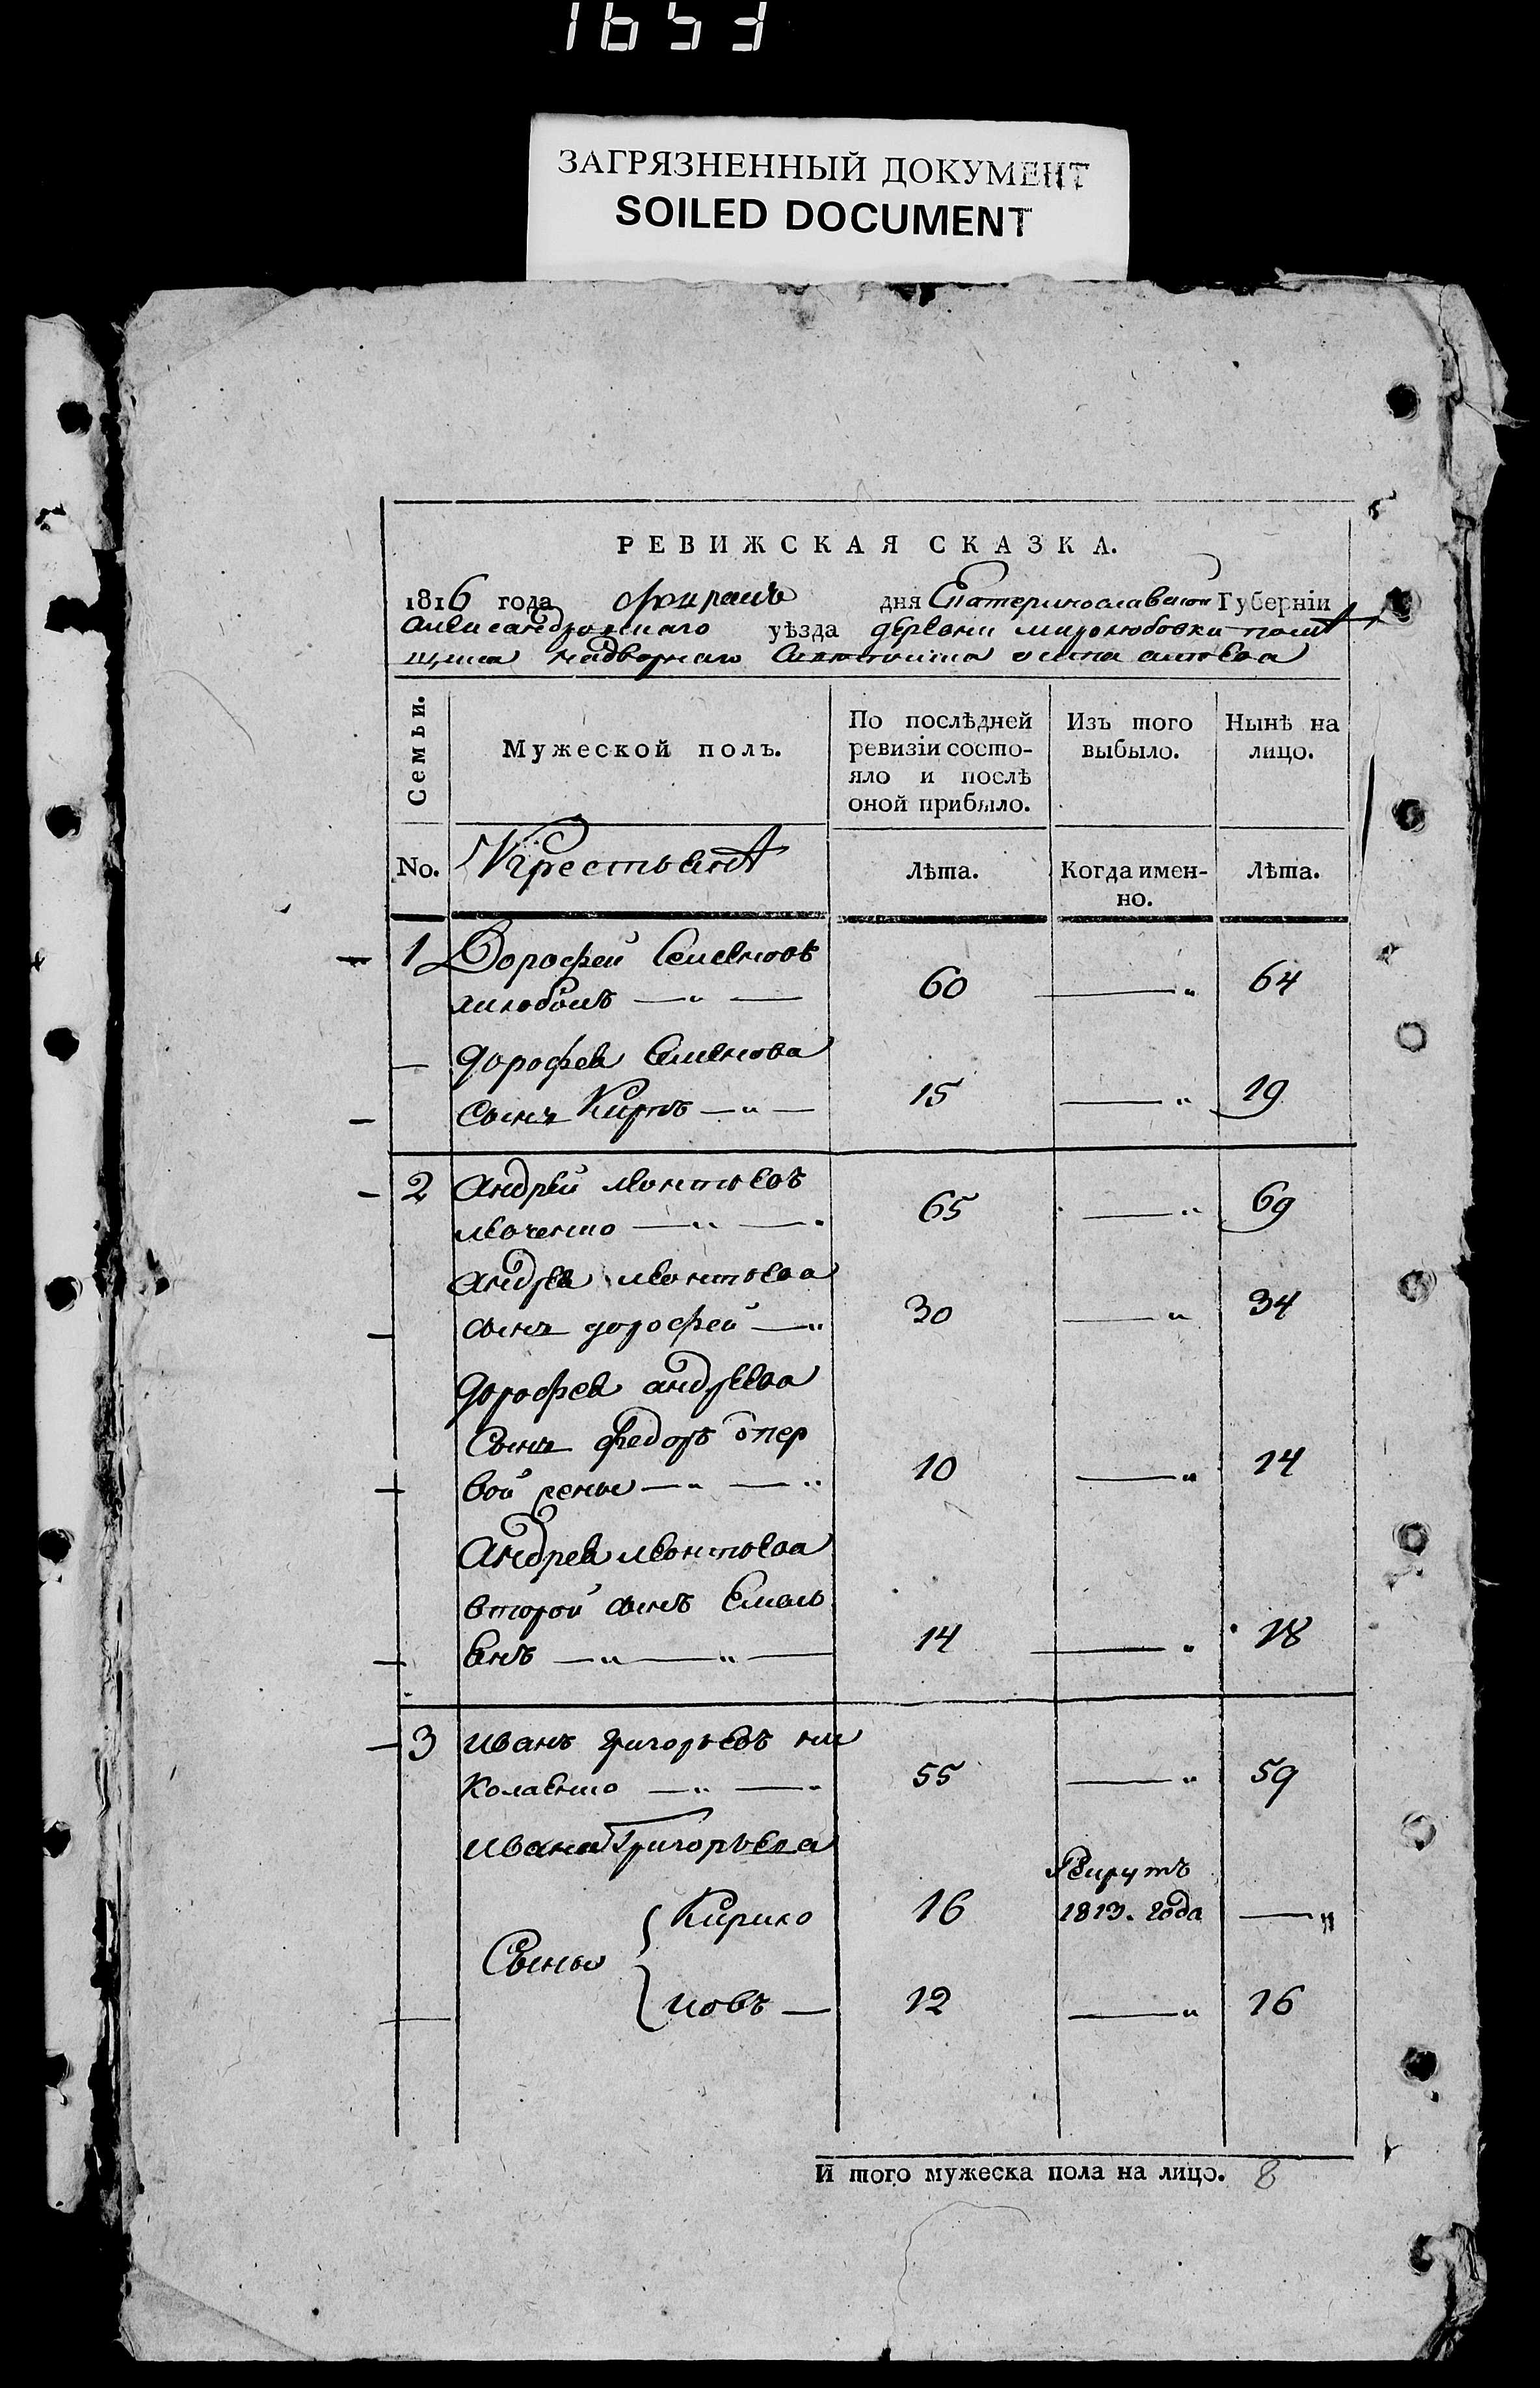 1653
ЗАГРЯЗНЕННЫЙ ДОКУМЕНТ
SOILED DOCUMENT
РЕВИЖСКАЯ СКАЗКА.
1816 года дня Екатеринославской Губернiи
александровскаго уѣзда деревни миролюбовки помѣ
щика надворнаго
Семьи.
Мужеской полъ.
По послѣдней
ревизiи состо-
яло и послѣ
оной прибыло.
Изъ того
выбыло.
Нынѣ на
лицо.
No. Крестьянѣ Лѣта. Когда имен-
но. Лѣта.
1 Дорофей Семеновъ
60 — „ 64
дорофея Семенова
сынъ Кирѣ — „ — 15 — „ 19
2 андрей леонтьевъ
— „ — „ 65 — „ 69
андрея леонтьева
сынъ дорофей — „ 30 — „ 34
дорофея андреева
Сынъ федоръ ѿпер
вой жены — „ — „ 10 — „ 14
андрея леонтьева
второй сынъ Емель
янъ — „ — „ — 14 — „ 18
3 иванъ григорьевъ ни
колаенко — „ — „ 55 — „ 59
ивана григорьева
Сыны
Кирило 16 Рекрутъ
1813. года — „
иовъ — 12 — „ 16
И того мужеска пола на лицо. 8